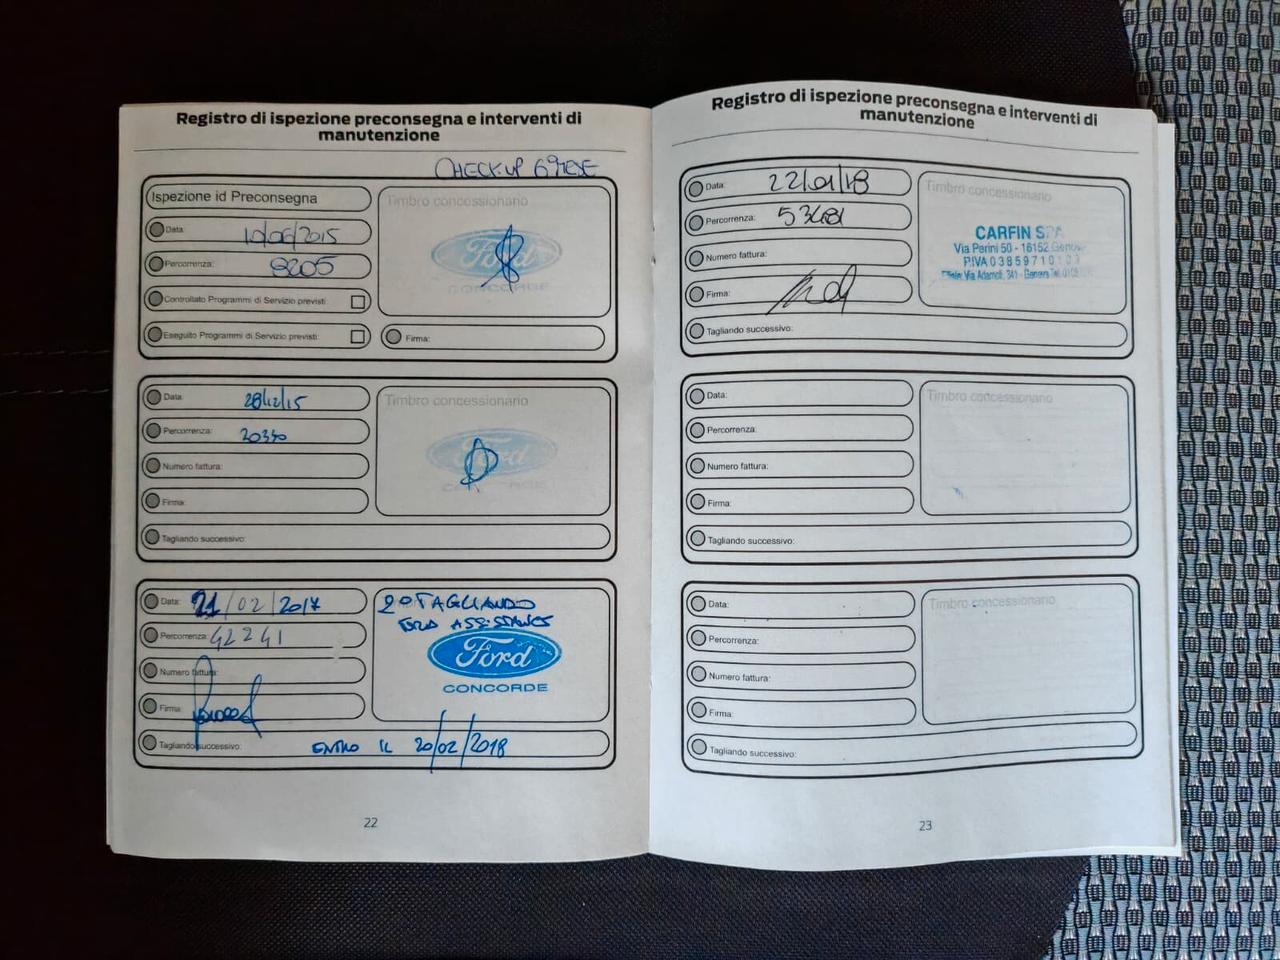 Registro di ispezione preconsegna e interventi di
manutenzione
CHECK-UP 6° MESE
Ispezione id Preconsegna
Timbro concessionario
Data: 10/06/2015
Percorrenza: 9205
Ford
CONCORDE
Controllato Programmi di Servizio previsti:
Eseguito Programmi di Servizio previsti:
Firma:
Data: 28/12/15
Timbro concessionario
Percorrenza: 20340
Ford
Numero fattura:
Firma:
Tagliando successivo:
Data: 21/02/2017
2° TAGLIANDO
FORD ASSISTANCE
Percorrenza: 42241
Ford
CONCORDE
Numero fattura:
Firma:
Tagliando successivo: ENTRO IL 20/02/2018
22
Registro di ispezione preconsegna e interventi di
manutenzione
Data: 22/01/18
Timbro concessionario
Percorrenza:
CARFIN
Via Parini 50 - 16152
Numero fattura:
P.IVA 03859710
Firma:
341 - Genova Tel.
Tagliando successivo:
Data:
Timbro concessionario
Percorrenza:
Numero fattura:
Firma:
Tagliando successivo:
Data:
Timbro concessionario
Percorrenza:
Numero fattura:
Firma:
Tagliando successivo:
23